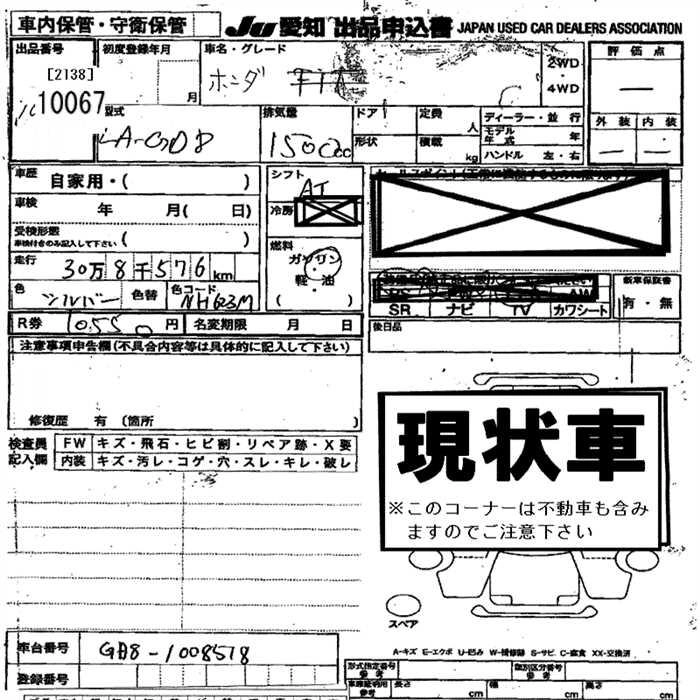 車内保管・守衛保管
JU 愛知 出品申込書 JAPAN USED CAR DEALERS ASSOCIATION
出品番号 初度登録年月 車名・グレード
[2138]
10067
月
ホンダ
2WD
・
4WD
評価点
外装 内装
型式
LA-GD8
排気量
1500cc
ドア
形状
定員 人
積載 kg
ディーラー・並行
モデル年式 年
ハンドル 左・右
車歴 自家用・( )
車検 年 月( 日)
受検形態
車検付きのみ記入して下さい ( )
走行 30万8千576km
色 シルバー 色替 色コード NH623M
シフト AT
冷房
燃料
ガソリン
・
軽・油
( )
SR ナビ TV カワシート
新車保証書
有・無
後日品
R券 10,550円 名変期限 月 日
注意事項申告欄(不具合内容等は具体的に記入して下さい)
修復歴 有 (箇所 )
検査員 FW キズ・飛石・ヒビ割・リペア跡・X要
記入欄 内装 キズ・汚レ・コゲ・穴・スレ・キレ・破レ
現状車
※このコーナーは不動車も含み
ますのでご注意下さい
スペア
A-キズ E-エクボ U-凹み W-補修跡 S-サビ C-腐食 XX-交換済
車台番号 GD8-1008518
登録番号
形式指定番号 参考 類別区分番号 参考
車検証記載 参考 長さ cm 幅 cm 高さ cm